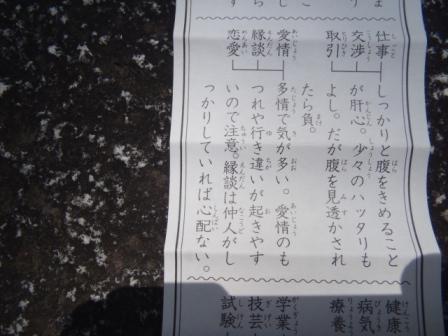 仕事
交渉
取引
しっかりと腹をきめること
が肝心。少々のハッタリも
よし。だが腹を見透かされ
たら負。
愛情
縁談
恋愛
多情で気が多い。愛情のも
つれや行き違いが起きやす
いので注意。縁談は仲人がし
っかりしていれば心配ない。
健康
病気
療養
学業
技芸
試験